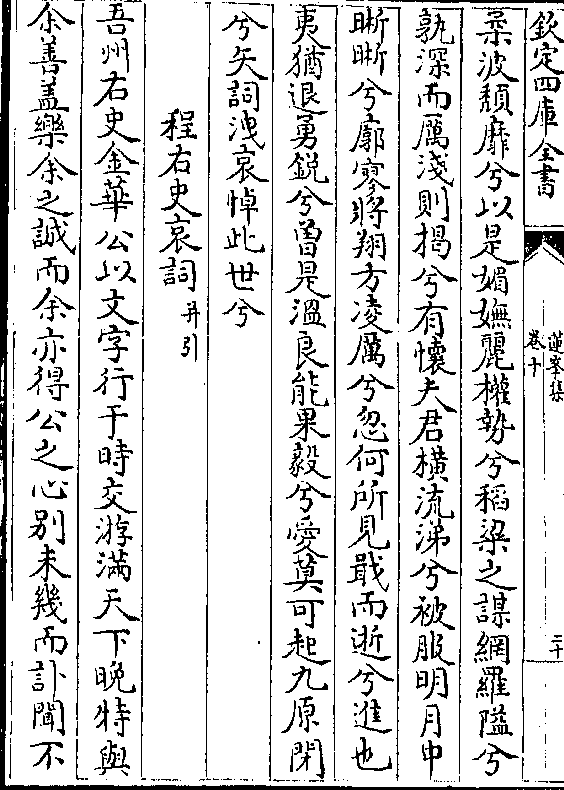 欽定四庫全書
蓮峯集
卷十
二十
柔波頽靡兮以是媚嫵麗權勢兮稻粱之謀網羅隘兮
孰深而厲淺則揭兮有懷夫君橫流涕兮被服明月中
晣晣兮廓寥將翔方凌厲兮忽何所見戢而逝兮進也
夷猶退勇鋭兮曽是溫良能果毅兮愛莫可起九原閉
兮矢詞洩哀悼此世兮
程右史哀詞并引
吾州右史金華公以文字行于時交游滿天下晩特與
余善盖樂余之誠而余亦得公之心别未幾而訃聞不